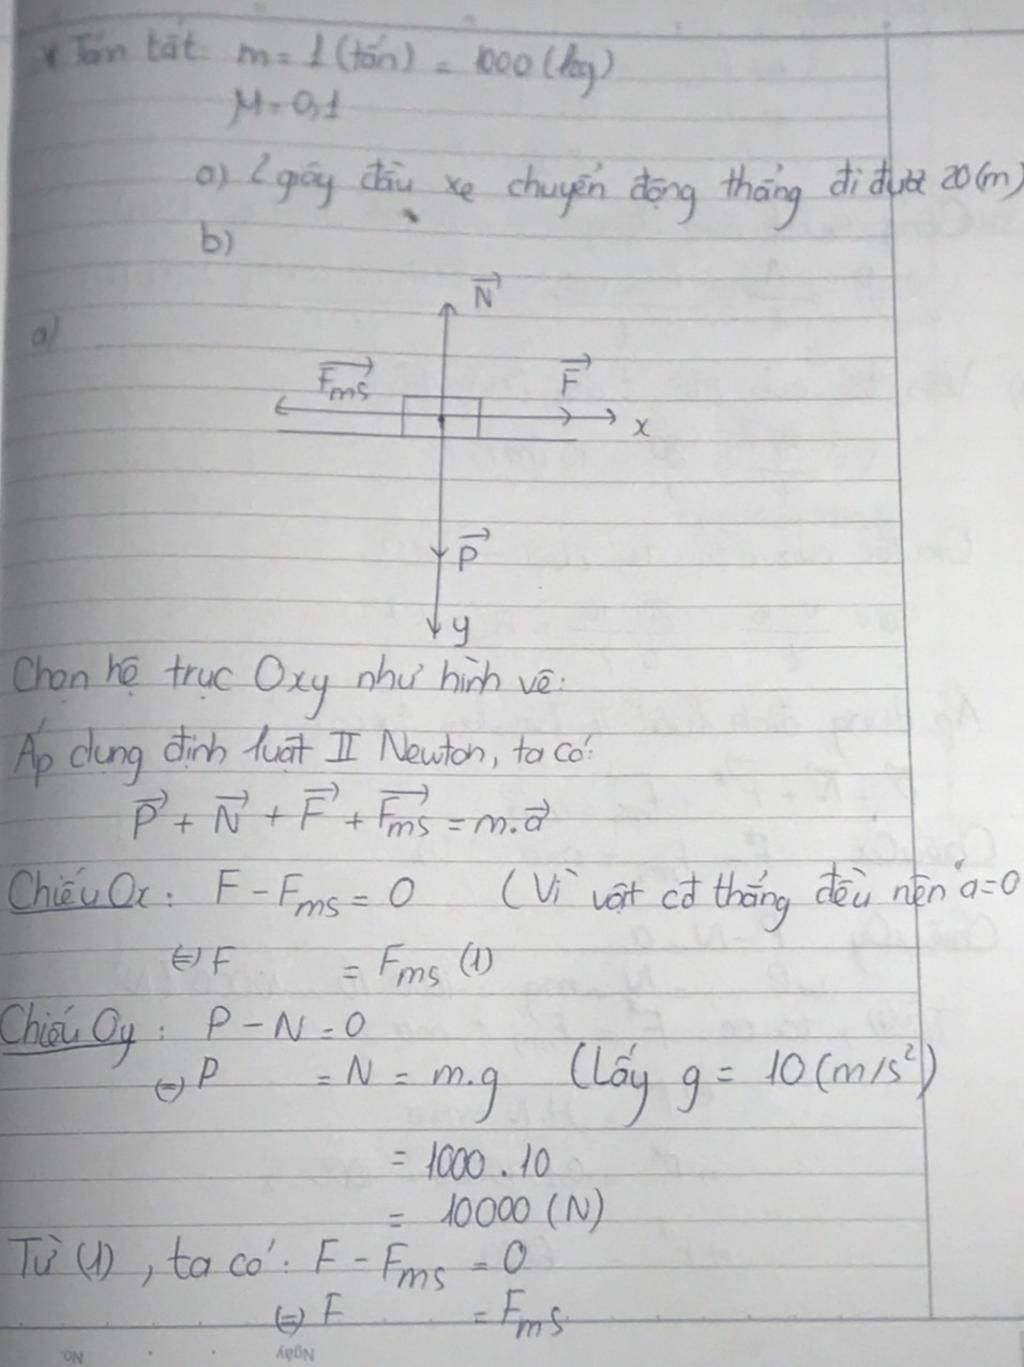 * Tóm tắt: m = 1 (tấn) = 1000 (kg)
μ = 0,1
a) 2 giây đầu xe chuyển động thẳng đi được 20(m)
b)
a)
N
Fms
F
x
P
y
Chọn hệ trục Oxy như hình vẽ:
Áp dụng định luật II Newton, ta có:
P + N + F + Fms = m.a
Chiếu Ox: F - Fms = 0 (Vì vật cđ thẳng đều nên a=0
⇔ F = Fms (1)
Chiếu Oy: P - N = 0
⇔ P = N = m.g (Lấy g = 10 (m/s²)
= 1000 . 10
= 10000 (N)
Từ (1), ta có: F - Fms = 0
⇔ F = Fms